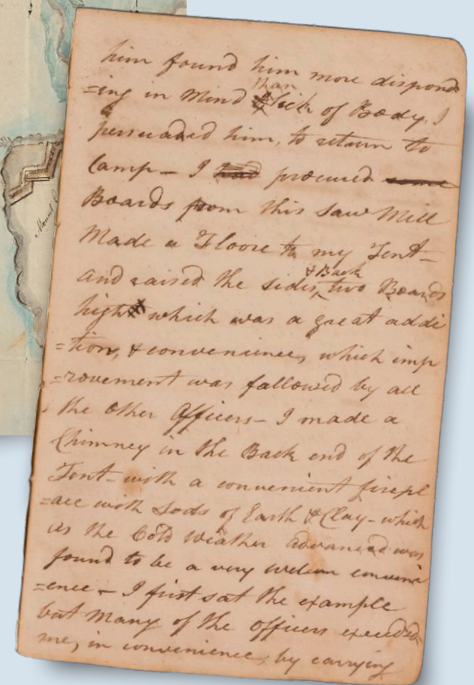 him found him more dispond
=ing in Mind than Sick of Body, I
persuaded him, to return to
Camp – I had procured some
Boards from this Saw Mill
Made a Floore to my Tent –
and raised the sides, & Back two Boards
high which was a great addi
=tion, & convenience, which imp
=rovement was followed by all
the Other Officers – I made a
Chimney in the Back end of the
Tent – with a convenient firepl
=ace with Sods of Earth & Clay – which
as the Cold weather advanced was
found to be a very welcom conveni
=ence – I first sat the example
but Many of the officers exceeded
me, in convenience, by carrying